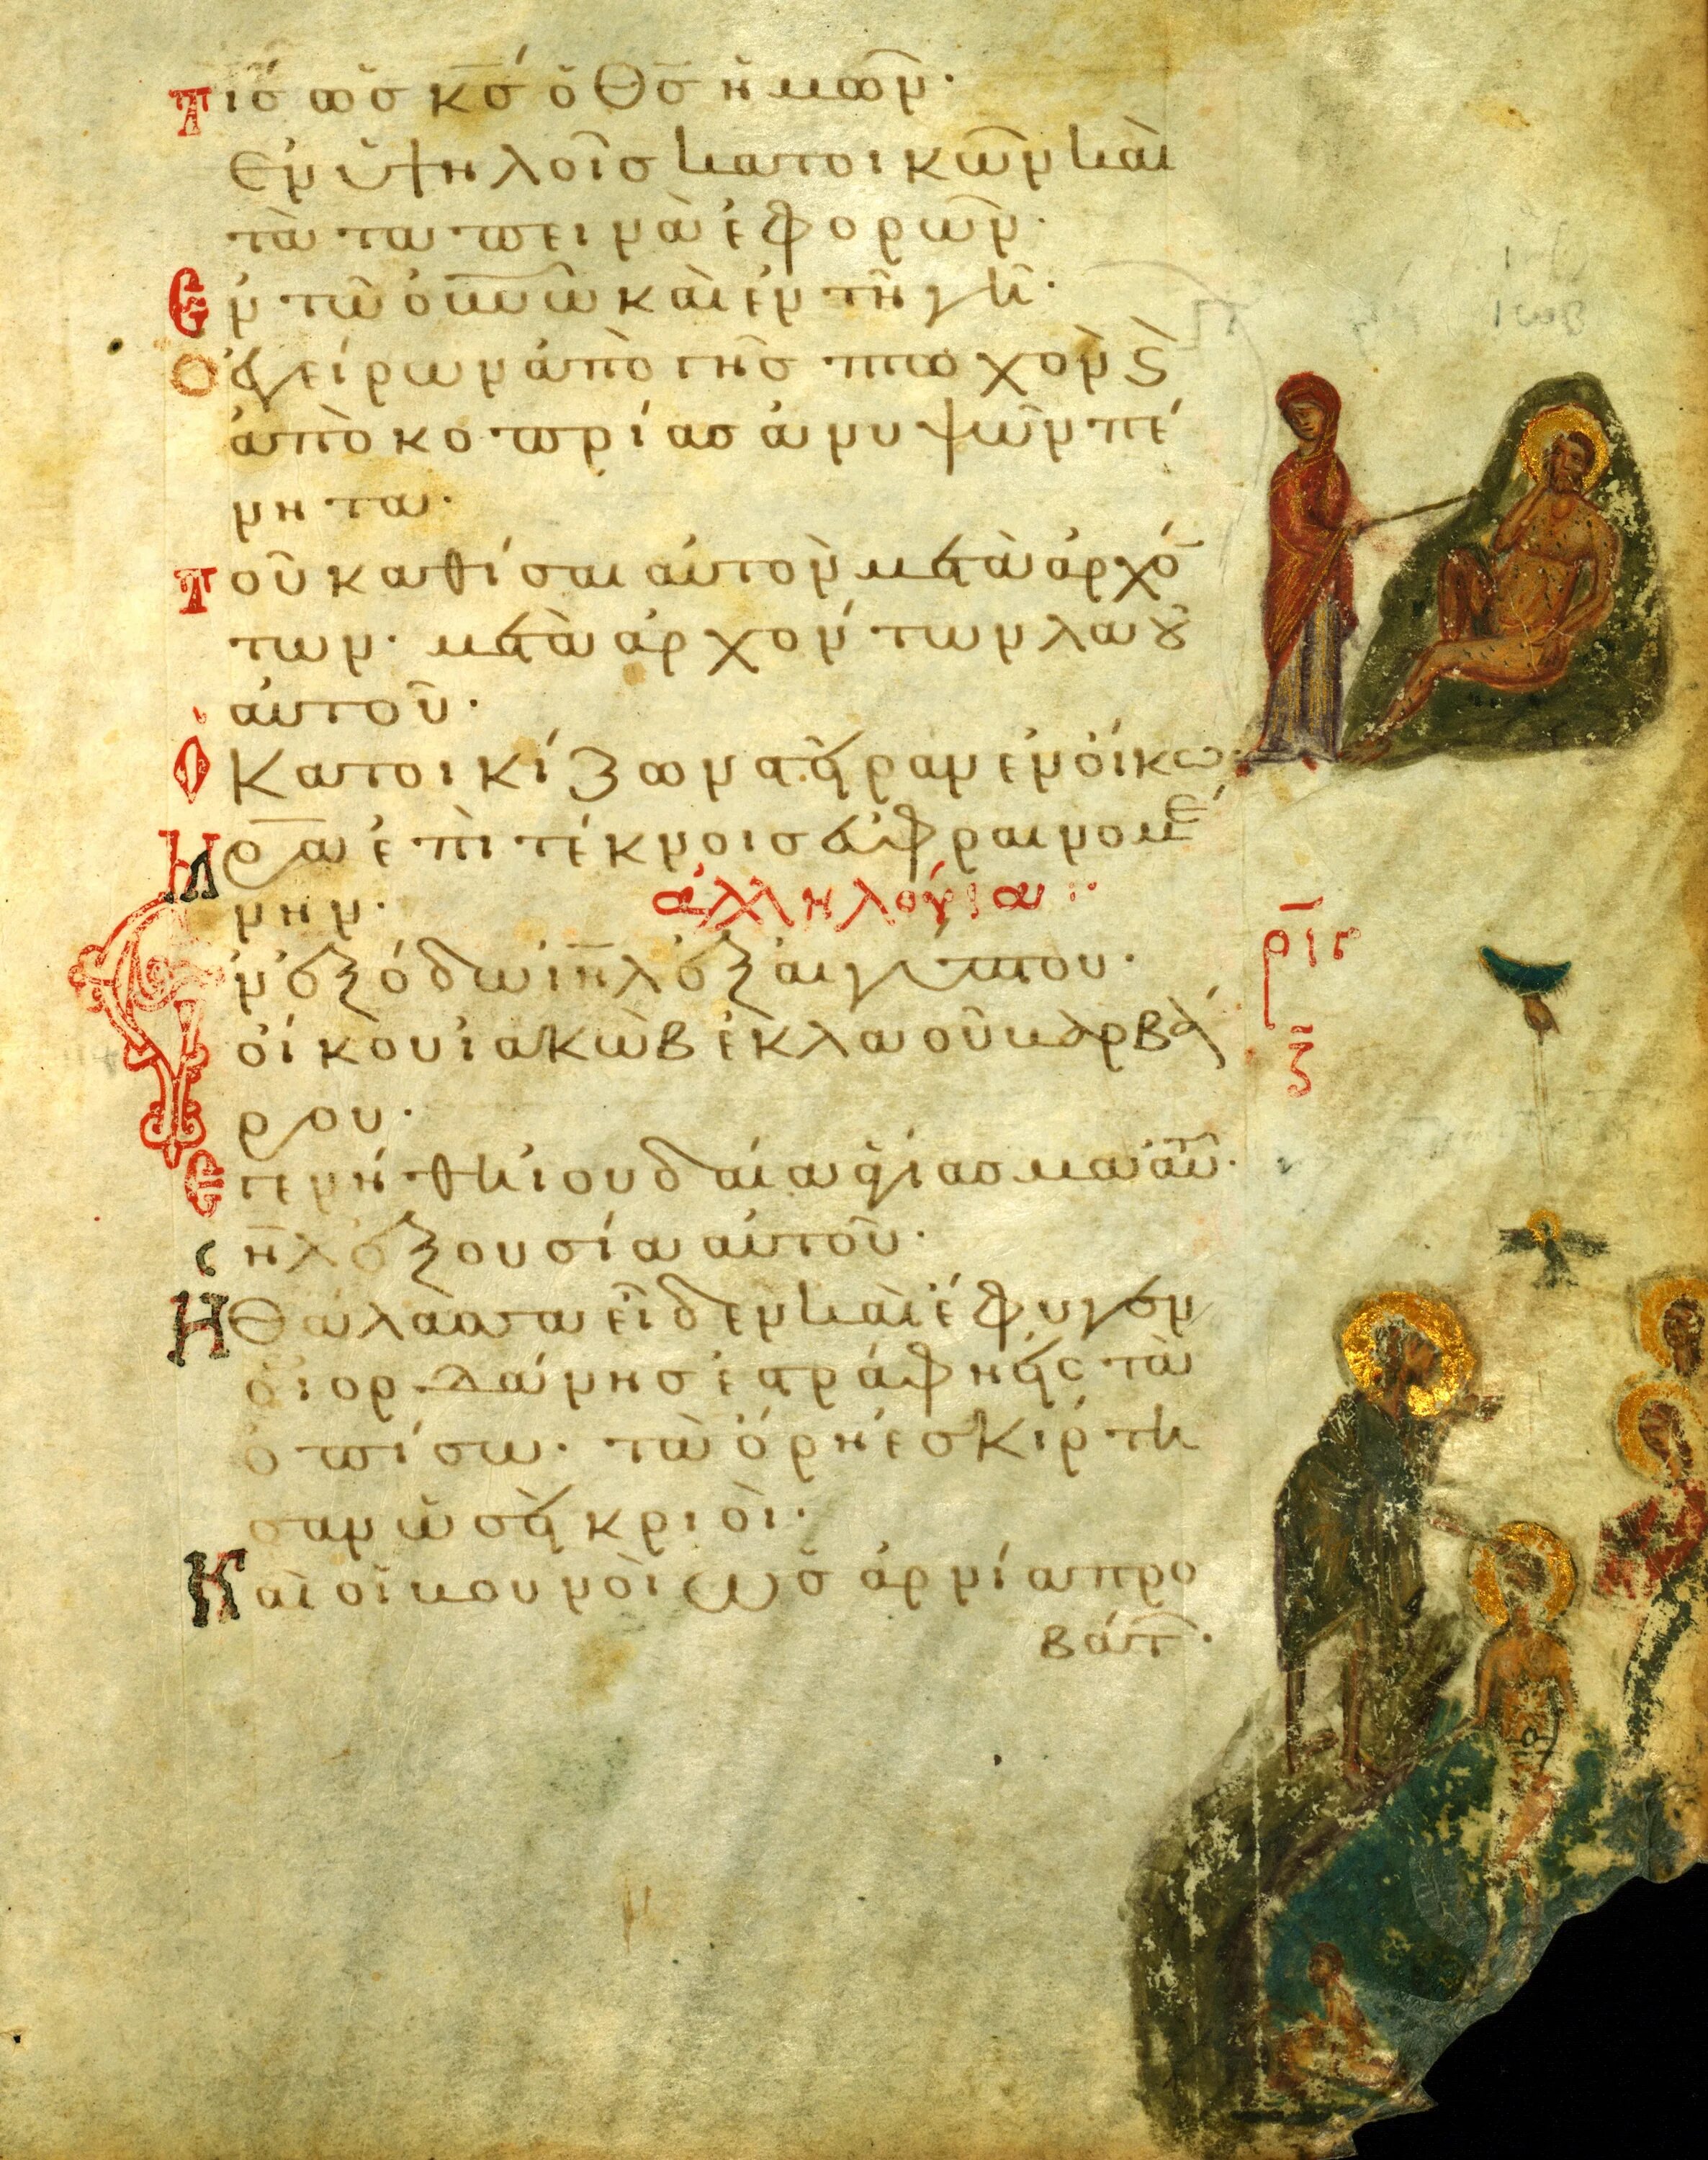 Τίσ ὡσ κ̅σ ὁ Θ̅σ ἡμῶν·
Ἐν ὑψηλοῖσ κατοικῶν καὶ
τὰ ταπεινὰ ἐφορῶν·
Ἐν τῶ ο̅υ̅ν̅ω̅ καὶ ἐν τῆ γῆ·
Ὁ ἐγείρων ἀπὸ γῆσ πτωχὸν ϗ
ἀπὸ κοπρίασ ἀνυψῶν πέ
νητα·
Τοῦ καθίσαι αὐτὸν μετὰ ἀρχό
των· μετὰ ἀρχόντων λαοῦ
αὐτοῦ·
Ὁ Κατοικίζων στεῖραν ἐν οἴκω·
μ̅ρ̅α̅ ἐπὶ τέκνοισ εὐφραινομέ
νην· ἀλληλούϊα
ρ̅ι̅γ̅
Ἐν ἐξόδω ι̅η̅λ̅ ἐξ αἰγύπτου·
οἴκου ἰακὼβ ἐκ λαοῦ βαρβά
ζ̅
ρου·
Ἐγενήθη ἰουδαία ἁγίασμα α̅υ̅·
ι̅η̅λ̅ ἐξουσία αὐτοῦ·
Ἡ Θάλασσα εἶδεν καὶ ἔφυγεν
ὁ ἰορδάνησ ἐστράφη εἰς τὰ
ὀπίσω· τὰ ὄρη ἐσκίρτη
σαν ὡσεὶ κριοὶ·
Καὶ οἱ βουνοὶ ὡσ ἀρνία προ
βάτ·